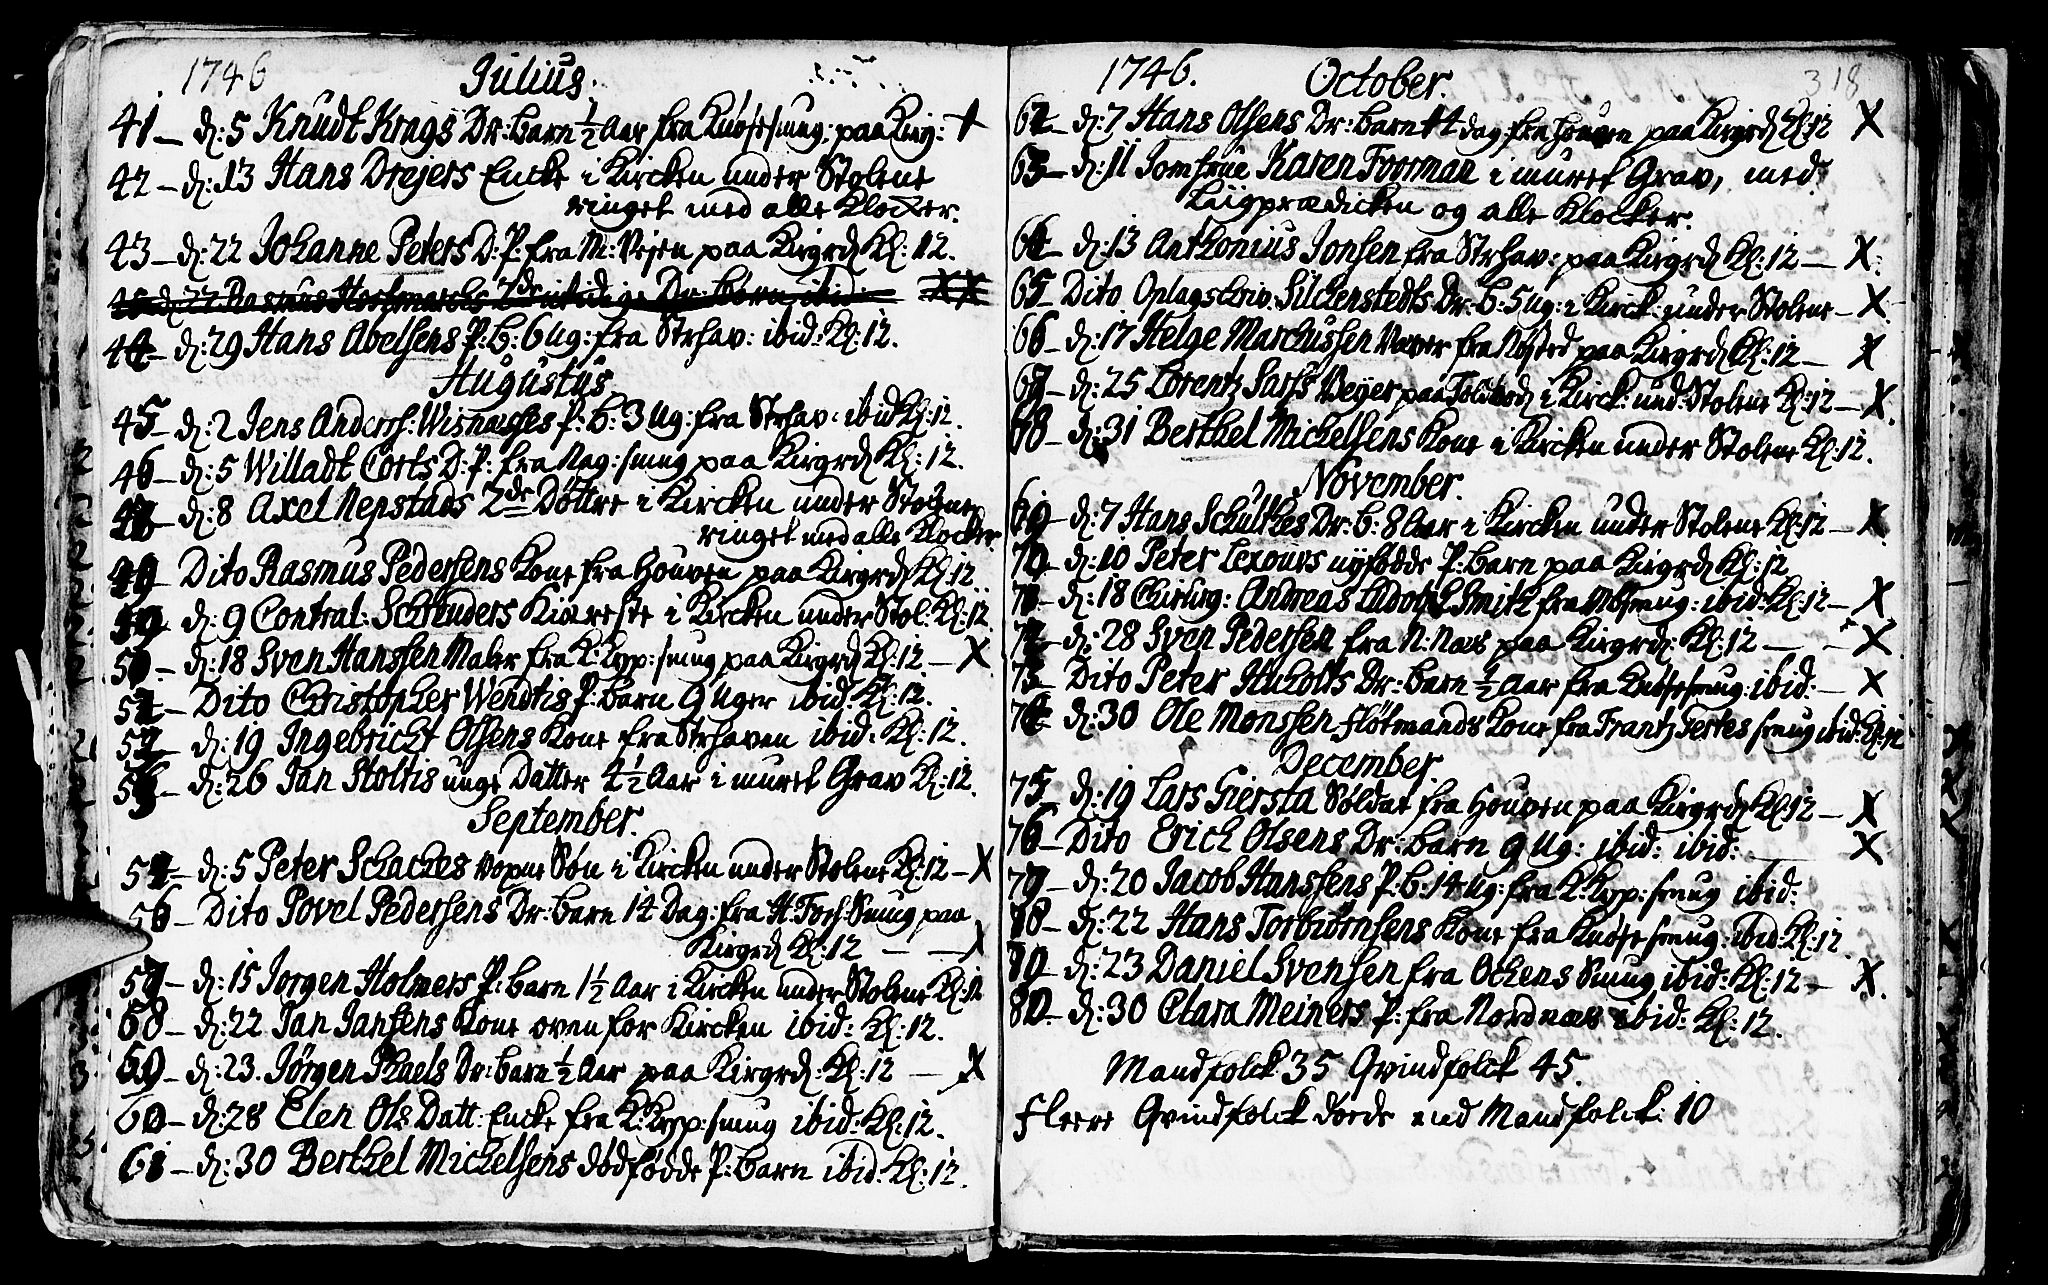 1746 Julius.
41 – d: 5 Knudt Krags Dr: barn ½ Aar fra Knøsesmug: paa Kirg: X
42 – d: 13 Hans Drejers Encke i Kircken under Stolene
ringet med alle Klocker.
43 – d: 22 Johanne Peters D: P: fra M: Vejen paa Kirgrd Kl: 12.
d: 27 Rasmus 2de Dr: børn ibid: XX
44 – d: 29 Hans Abelsens P: B: 6 Ug: fra Strhav: ibid: Kl: 12.
Augustus
45 – d: 2 Jens Andersf: P: b: 3 Ug: fra Strhav: ibid Kl: 12.
46 – d: 5 Willadt Corts D: P: fra Nag: smug paa Kirgrd Kl: 12.
d: 8 Axel Nepstads 2de Døttre i Kircken under Stolene
ringet med alle Klocker.
Dito Rasmus Pedersens Kone fra Houven paa Kirgrd Kl: 12.
d: 9 Contral: Schrøders Kiæreste i Kircken under Stol: Kl: 12
d: 18 Sven Hanssen Maler fra K: Kyp: smug paa Kirgrd Kl: 12 – X
Dito Christopher Wendtis P: barn 9 Uger ibid: Kl: 12.
d: 19 Ingebricht Olsens Kone fra Strhaven ibid: Kl: 12.
d: 26 Jan Stoltis unge Datter 4½ Aar i muret Grav Kl: 12.
September.
d: 5 Peter Schackes Søn i Kircken under Stolene Kl: 12 – X
56 – Dito Povel Pedersens Dr: barn 14 Dag: fra H: Smug paa
Kirgrd Kl: 12 – – X
57 – d: 15 Jørgen Holmers P: barn 1½ Aar i Kircken under Stolene Kl: 12
58 – d: 22 Jan Jansens Kone oven for Kircken ibid: Kl: 12.
59 – d: 23. Jørgen Dr: barn ½ Aar paa Kirgrd: Kl: 12 – X
60 – d: 28 Elen Ols Datt: Encke fra K: Kyp: smug ibid: Kl: 12.
61 – d: 30 Berthel Mickelsens dødfødde P: barn ibid: Kl: 12.
1746. October. 318
62 – d: 7 Hans Olsens Dr: barn 14 dag: fra Houven paa Kirgrd Kl: 12 X
63 – d: 11 Jomfrue Karen Foorman i muret Grav, med
Liigprædicken og alle Klocker.
64 – d: 13 Anthonius Jonsen fra Strhav: paa Kirgrd Kl: 12 – X.
65 Dito Oplagsskriv: Silckenstedts Dr: b: 5 ug: i Kirck: under Stolene – X
66 – d: 17 Helge Marckussen Væver fra Nøsted paa Kirgrd Kl: 12 – X
67 – d: 25 Lorentz Veyer paa Toldbod i Kirck: und: Stolene Kl: 12 – X.
68 – d: 31 Berthel Mickelsens Kone i Kircken under Stolene Kl: 12.
November.
69 – d: 7 Hans Schultkes Dr: b: 8 Aar i Kircken under Stolene Kl: 12 – X
70 – d: 10 Peter Lexouvs nyfødde P: barn paa Kirgrd Kl: 12
71 – d: 18 Chirurg: Andreas Ludolph Smith fra smug: ibid: Kl: 12 – X
72 – d: 28 Sven Pedersen fra N: Næs paa Kirgrd: Kl: 12 – – X
73 – Dito Peter Dr: barn ½ Aar fra Knøsesmug: ibid: – X
74 d: 30 Ole Monssen Fløtmands Kone fra Frantz Tertes smug ibid: Kl: 12
December.
75 d: 19 Lars Giersta Soldat fra Houven paa Kirgrd Kl: 12 – X
76 – Dito Erich Olsens Dr: barn 9 ug: ibid: ibid: X
77 – d: 20 Jacob Hanssens P: b: 14 ug: fra K: Kyp: smug ibid:
78 – d: 22 Hans Torbiørnsens Kone fra Knøsesmug: ibid: Kl: 12
79 – d: 23 Daniel Svensen fra Ochens Smug ibid: Kl: 12 – X.
80 – d: 30 Clara Meiners P: fra Nordnæs ibid: Kl: 12.
Mandfolck 35 Qvindfolck 45.
Fleere Qvindfolck døde end Mandfolck: 10